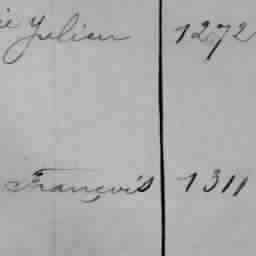 ie Julien 1272
François 1311